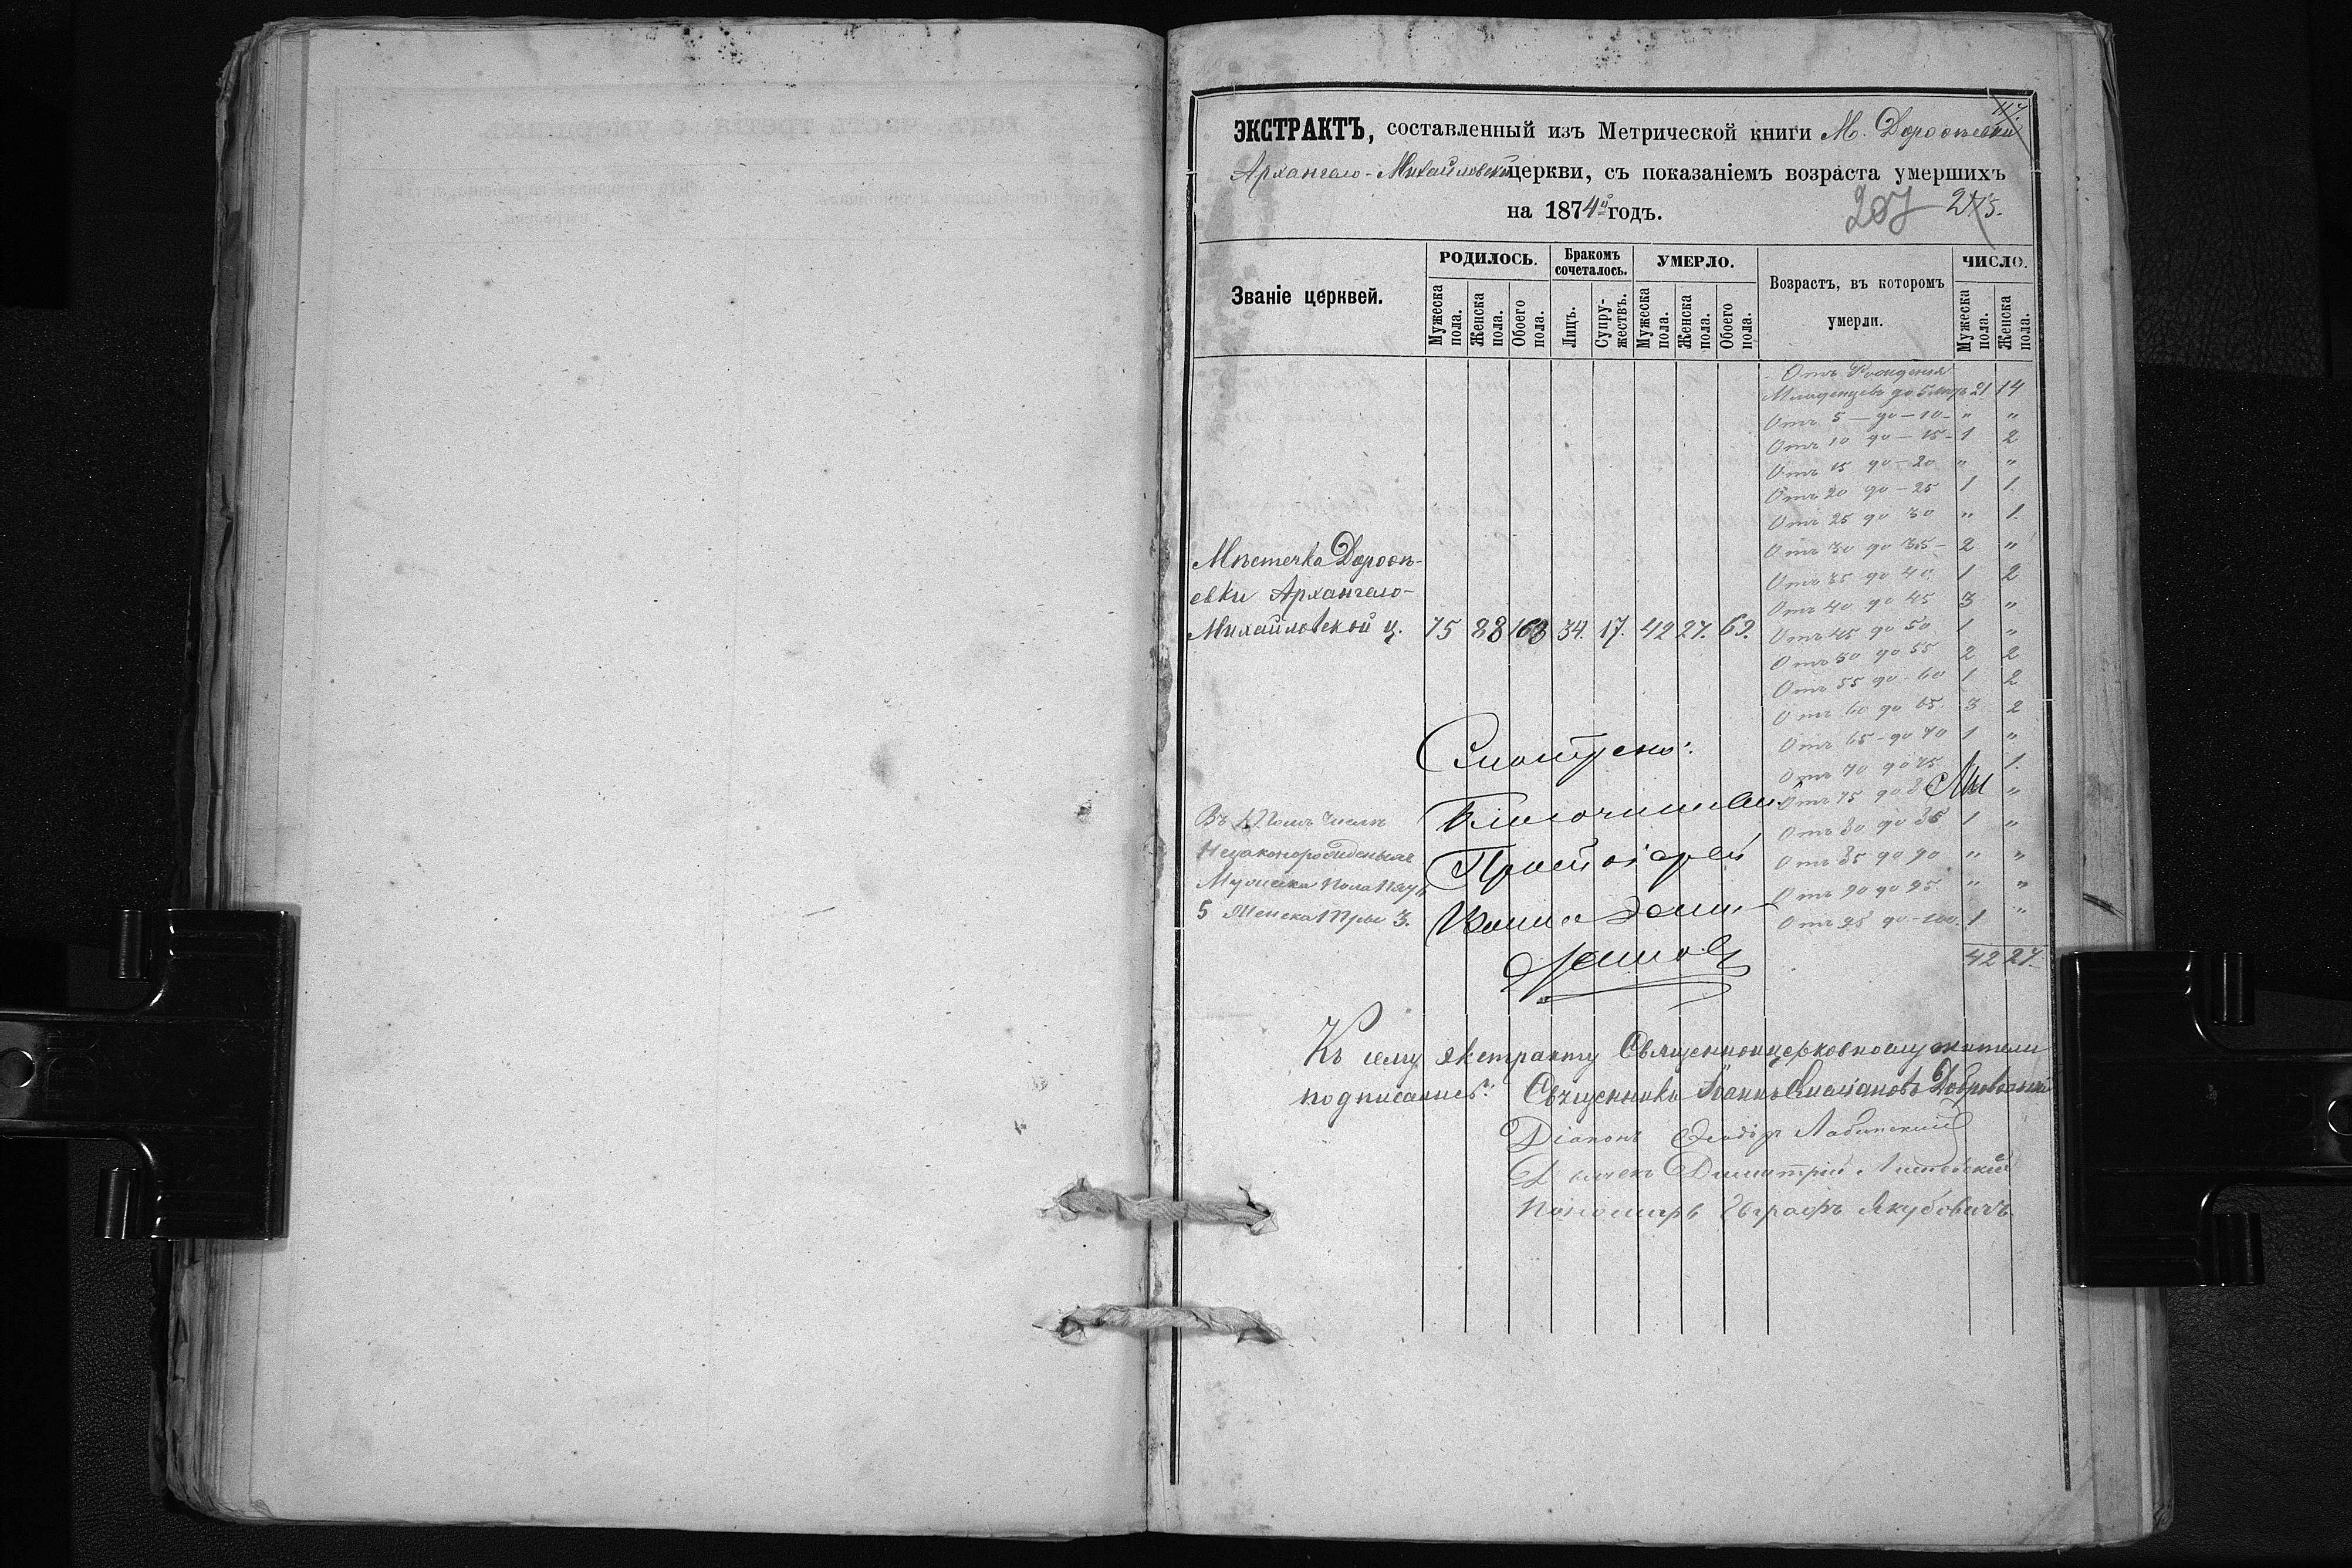 117.
ЭКСТРАКТЪ, составленный изъ Метрической книги М. Дороѳѣевки
Архангело-Михайловской церкви, съ показаніемъ возраста умершихъ
на 1874й годъ.
207 275.
Званіе церквей.
РОДИЛОСЬ.
Мужеска пола.
Женска пола.
Обоего пола.
Бракомъ сочеталось.
Лицъ.
Супружествъ.
УМЕРЛО.
Мужеска пола.
Женска пола.
Обоего пола.
Возрастъ, въ которомъ
умерли.
ЧИСЛО.
Мужеска пола.
Женска пола.
Отъ Рожденія
Младенцевъ до 5 лѣтъ 21 14
Отъ 5 – до – 10 – " "
Отъ 10 до – 15 – 1 2
Отъ 15 до – 20 " "
Отъ 20 до – 25 1 1.
Отъ 25 до 30 " 1.
Отъ 30 до 35 – 2 "
Отъ 35 до 40. 1 2
Отъ 40 до 45 3 "
Отъ 45 до 50 1 "
Отъ 50 до 55 2 2
Отъ 55 до – 60 1 2
Отъ 60 до 65. 3 2
Отъ 65 – до 70 1 "
Отъ 70 до 75. 1.
Отъ 75 до "
Отъ 80 до 85 1 "
Отъ 85 до 90 " "
Отъ 90 до 95. " "
Отъ 95 до – 100. 1 "
42 27.
Мѣстечка Дороѳѣ-
евки Архангело-
Михайловской ц. 75 88 163 34. 17. 42 27. 69.
Въ томъ числѣ
Незаконорожденыхъ
Мужеска пола пять
5 Женска три 3.
Смотрено:
Протоіерей
Къ сему экстракту Священноцерковнослужители
подписались: Священникъ Іоаннъ Добровольскій
Діаконъ Ѳеодоръ Лабинскій
Димитрій
Пономарь Евграфъ Якубовичъ